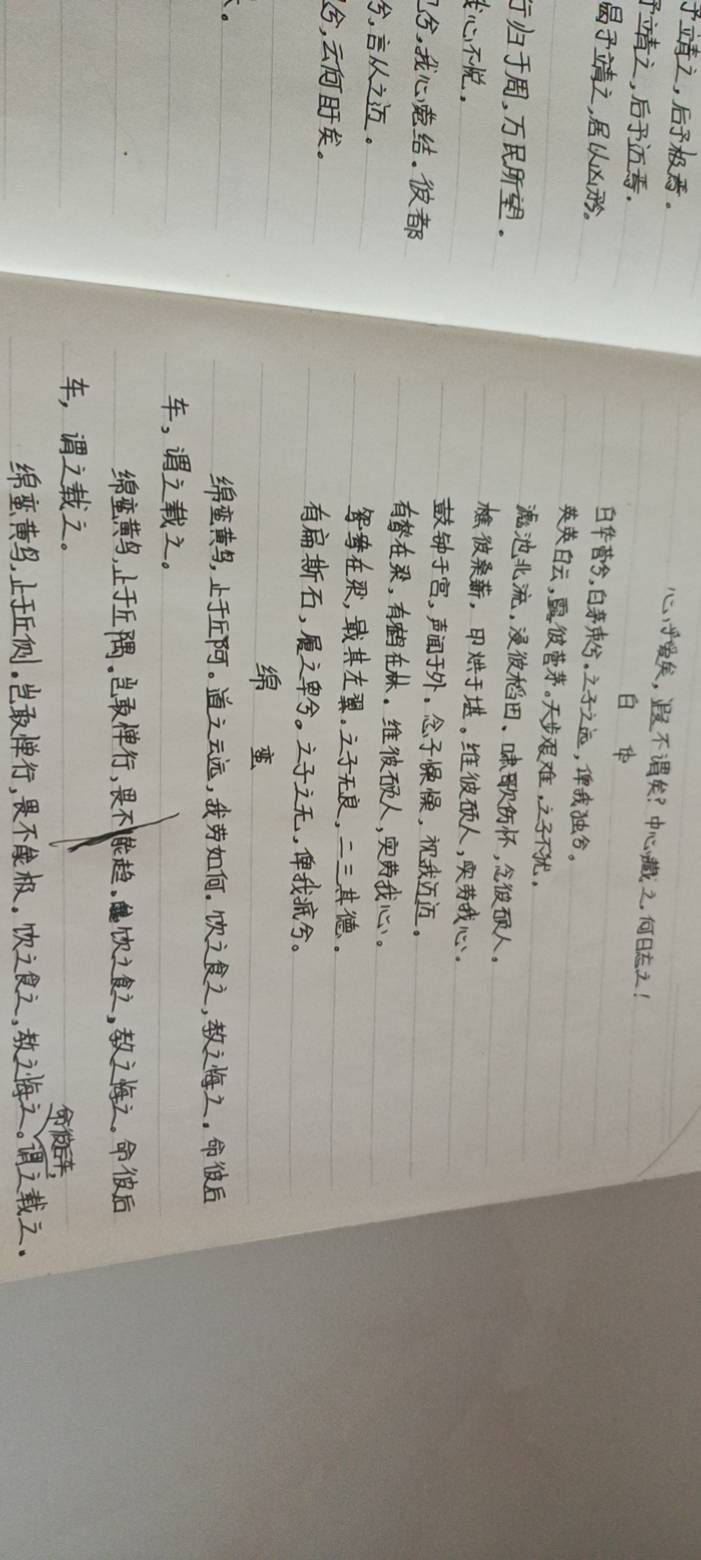 予靖之，后予极焉。
予靖之，后予迈焉。
曷予靖之，居以凶矜。
行归于周，万民所望。
我心不悦。
兮，我心苑结。彼都
兮，言从之迈。
兮，云何盱矣。
心乎爱矣，遐不谓矣？中心藏之，何日忘之！
白华
白华菅兮，白茅束兮。之子之远，俾我独兮。
英英白云，露彼菅茅。天步艰难，之子不犹。
滮池北流，浸彼稻田。啸歌伤怀，念彼硕人。
樵彼桑薪，卬烘于堪。维彼硕人，实劳我心。
鼓钟于宫，声闻于外。念子懆懆，视我迈迈。
有鹙在梁，有鹤在林。维彼硕人，实劳我心。
鸳鸯在梁，戢其左翼。之子无良，二三其德。
有扁斯石，履之卑兮。之子之无，俾我疧兮。
绵蛮
绵蛮黄鸟，止于丘阿。道之云远，我劳如何。饮之食之，教之悔之。命彼后
车，谓之载之。
绵蛮黄鸟，止于丘隅。岂敢惮行，畏不能趋。饮之食之，教之悔之。命彼后
车，谓之载之。
绵蛮黄鸟，止于丘侧。岂敢惮行，畏不能极。饮之食之，教之悔之。命彼后车，谓之载之。